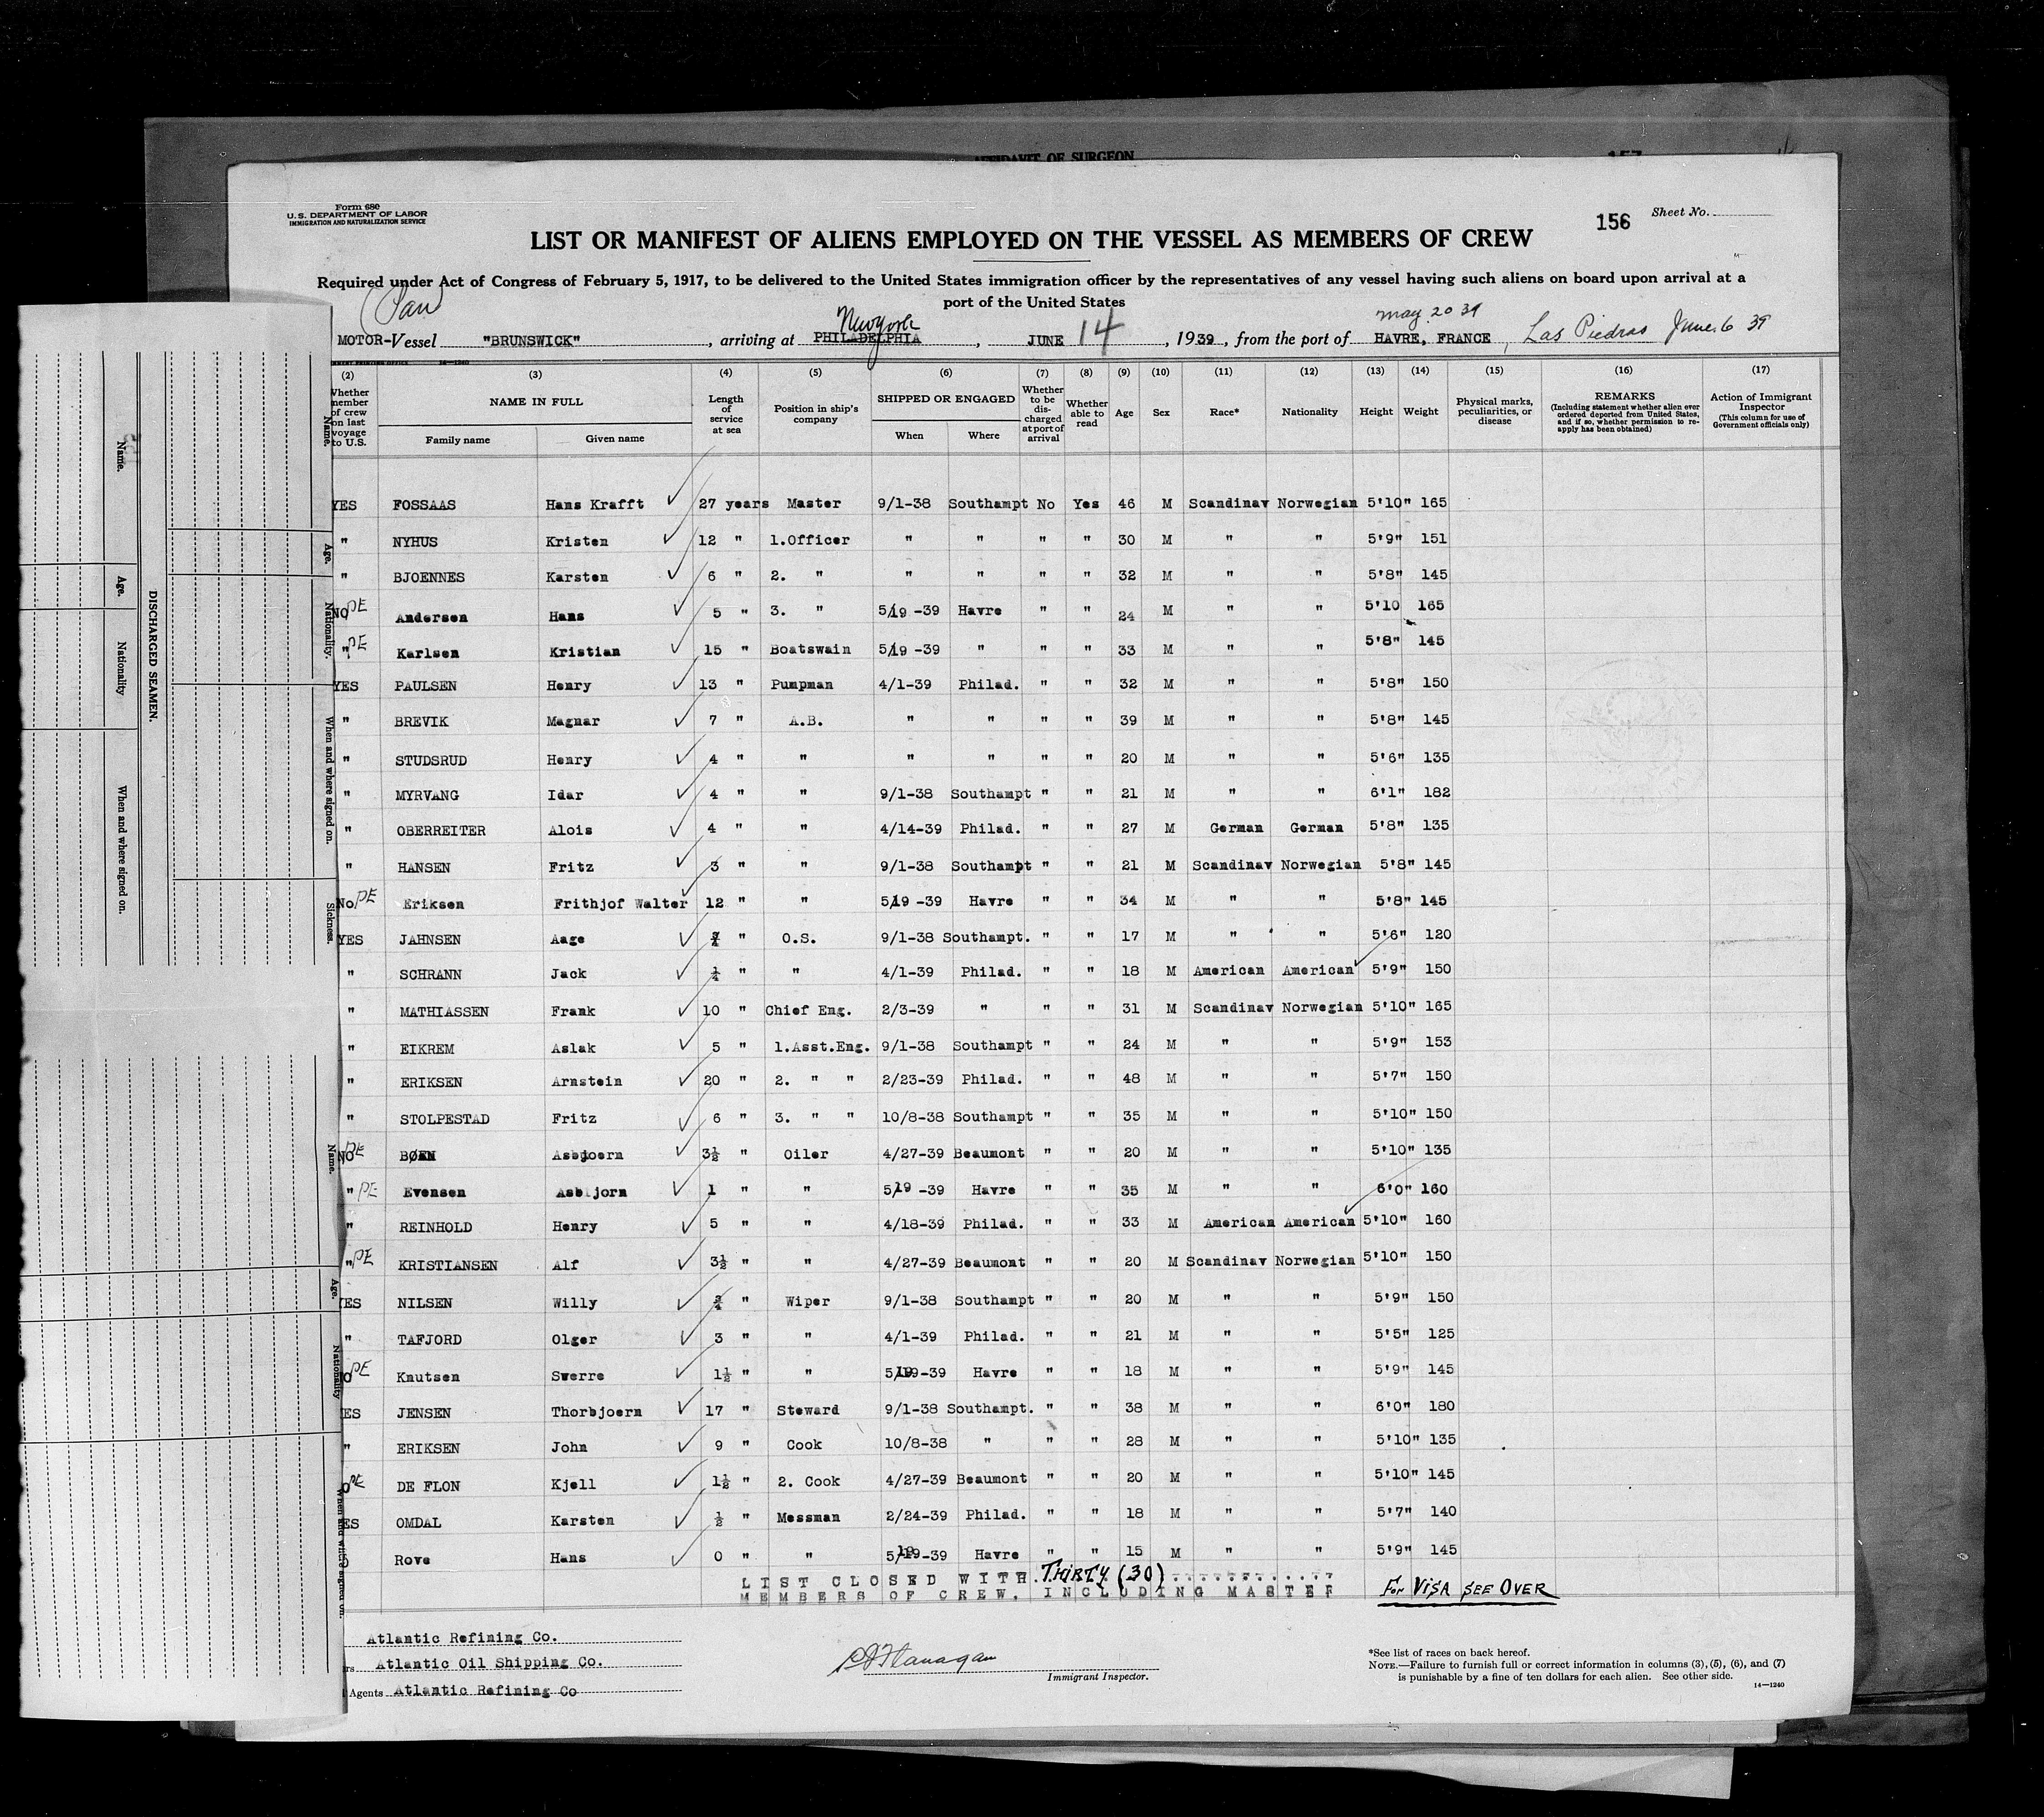 AFFIDAVIT OF SURGEON
157
Form 680
U. S. DEPARTMENT OF LABOR
IMMIGRATION AND NATURALIZATION SERVICE
156 Sheet No.
LIST OR MANIFEST OF ALIENS EMPLOYED ON THE VESSEL AS MEMBERS OF CREW
Required under Act of Congress of February 5, 1917, to be delivered to the United States immigration officer by the representatives of any vessel having such aliens on board upon arrival at a
port of the United States
(Pan)
New York
May 20 39
MOTOR-Vessel "BRUNSWICK", arriving at PHILADELPHIA, JUNE 14, 1939, from the port of HAVRE, FRANCE, Las Piedras June 6 39
(2) (3) (4) (5) (6) (7) (8) (9) (10) (11) (12) (13) (14) (15) (16) (17)
Whether member of crew on last voyage to U.S.
NAME IN FULL
Family name Given name
Length of service at sea
Position in ship's company
SHIPPED OR ENGAGED
When Where
Whether to be discharged at port of arrival
Whether able to read
Age
Sex
Race*
Nationality
Height
Weight
Physical marks, peculiarities, or disease
REMARKS
(Including statement whether alien ever ordered deported from United States, and if so, whether permission to re-apply has been obtained)
Action of Immigrant Inspector
(This column for use of Government officials only)
YES FOSSAAS Hans Krafft 27 years Master 9/1-38 Southampt No Yes 46 M Scandinav Norwegian 5'10" 165
" NYHUS Kristen 12 " 1.Officer " " " " 30 M " " 5'9" 151
" BJOENNES Karsten 6 " 2. " " " " " 32 M " " 5'8" 145
NO PE Andersen Hans 5 " 3. " 5/19-39 Havre " " 24 M " " 5'10 165
" PE Karlsen Kristian 15 " Boatswain 5/19-39 " " " 33 M " " 5'8" 145
YES PAULSEN Henry 13 " Pumpman 4/1-39 Philad. " " 32 M " " 5'8" 150
" BREVIK Magnar 7 " A.B. " " " " 39 M " " 5'8" 145
" STUDSRUD Henry 4 " " " " " " 20 M " " 5'6" 135
" MYRVANG Idar 4 " " 9/1-38 Southampt " " 21 M " " 6'1" 182
" OBERREITER Alois 4 " " 4/14-39 Philad. " " 27 M German German 5'8" 135
" HANSEN Fritz 3 " " 9/1-38 Southampt " " 21 M Scandinav Norwegian 5'8" 145
No PE Eriksen Frithjof Walter 12 " " 5/19-39 Havre " " 34 M " " 5'8" 145
YES JAHNSEN Aage " O.S. 9/1-38 Southampt. " " 17 M " " 5'6" 120
" SCHRANN Jack ¼ " " 4/1-39 Philad. " " 18 M American American 5'9" 150
" MATHIASSEN Frank 10 " Chief Eng. 2/3-39 " " " 31 M Scandinav Norwegian 5'10" 165
" EIKREM Aslak 5 " 1.Asst.Eng. 9/1-38 Southampt " " 24 M " " 5'9" 153
" ERIKSEN Arnstein 20 " 2. " " 2/23-39 Philad. " " 48 M " " 5'7" 150
" STOLPESTAD Fritz 6 " 3. " " 10/8-38 Southampt " " 35 M " " 5'10" 150
NO PE BØEN Asbjoern 3½ " Oiler 4/27-39 Beaumont " " 20 M " " 5'10" 135
" PE Evensen Asbjorn 1 " " 5/19-39 Havre " " 35 M " " 6'0" 160
" REINHOLD Henry 5 " " 4/18-39 Philad. " " 33 M American American 5'10" 160
" PE KRISTIANSEN Alf 3½ " " 4/27-39 Beaumont " " 20 M Scandinav Norwegian 5'10" 150
ES NILSEN Willy ¾ " Wiper 9/1-38 Southampt " " 20 M " " 5'9" 150
" TAFJORD Olger 3 " " 4/1-39 Philad. " " 21 M " " 5'5" 125
O PE Knutsen Swerre 1½ " " 5/19-39 Havre " " 18 M " " 5'9" 145
ES JENSEN Thorbjoern 17 " Steward 9/1-38 Southampt. " " 38 M " " 6'0" 180
" ERIKSEN John 9 " Cook 10/8-38 " " " 28 M " " 5'10" 135
O PE DE FLON Kjell 1½ " 2. Cook 4/27-39 Beaumont " " 20 M " " 5'10" 145
ES OMDAL Karsten ½ " Messman 2/24-39 Philad. " " 18 M " " 5'7" 140
O Rove Hans 0 " " 5/19-39 Havre " " 15 M " " 5'9" 145
LIST CLOSED WITH THIRTY (30)
MEMBERS OF CREW, INCLUDING MASTER
For VISA SEE OVER
Atlantic Refining Co.
rs Atlantic Oil Shipping Co.
Agents Atlantic Refining Co
Flanagan
Immigrant Inspector.
*See list of races on back hereof.
NOTE.—Failure to furnish full or correct information in columns (3), (5), (6), and (7)
is punishable by a fine of ten dollars for each alien. See other side.
14—1240
DISCHARGED SEAMEN.
Name. Age. Nationality When and where signed on.
Name. Age. Nationality. When and where signed on. Sickness.
Name. Age. Nationality When and where signed on.